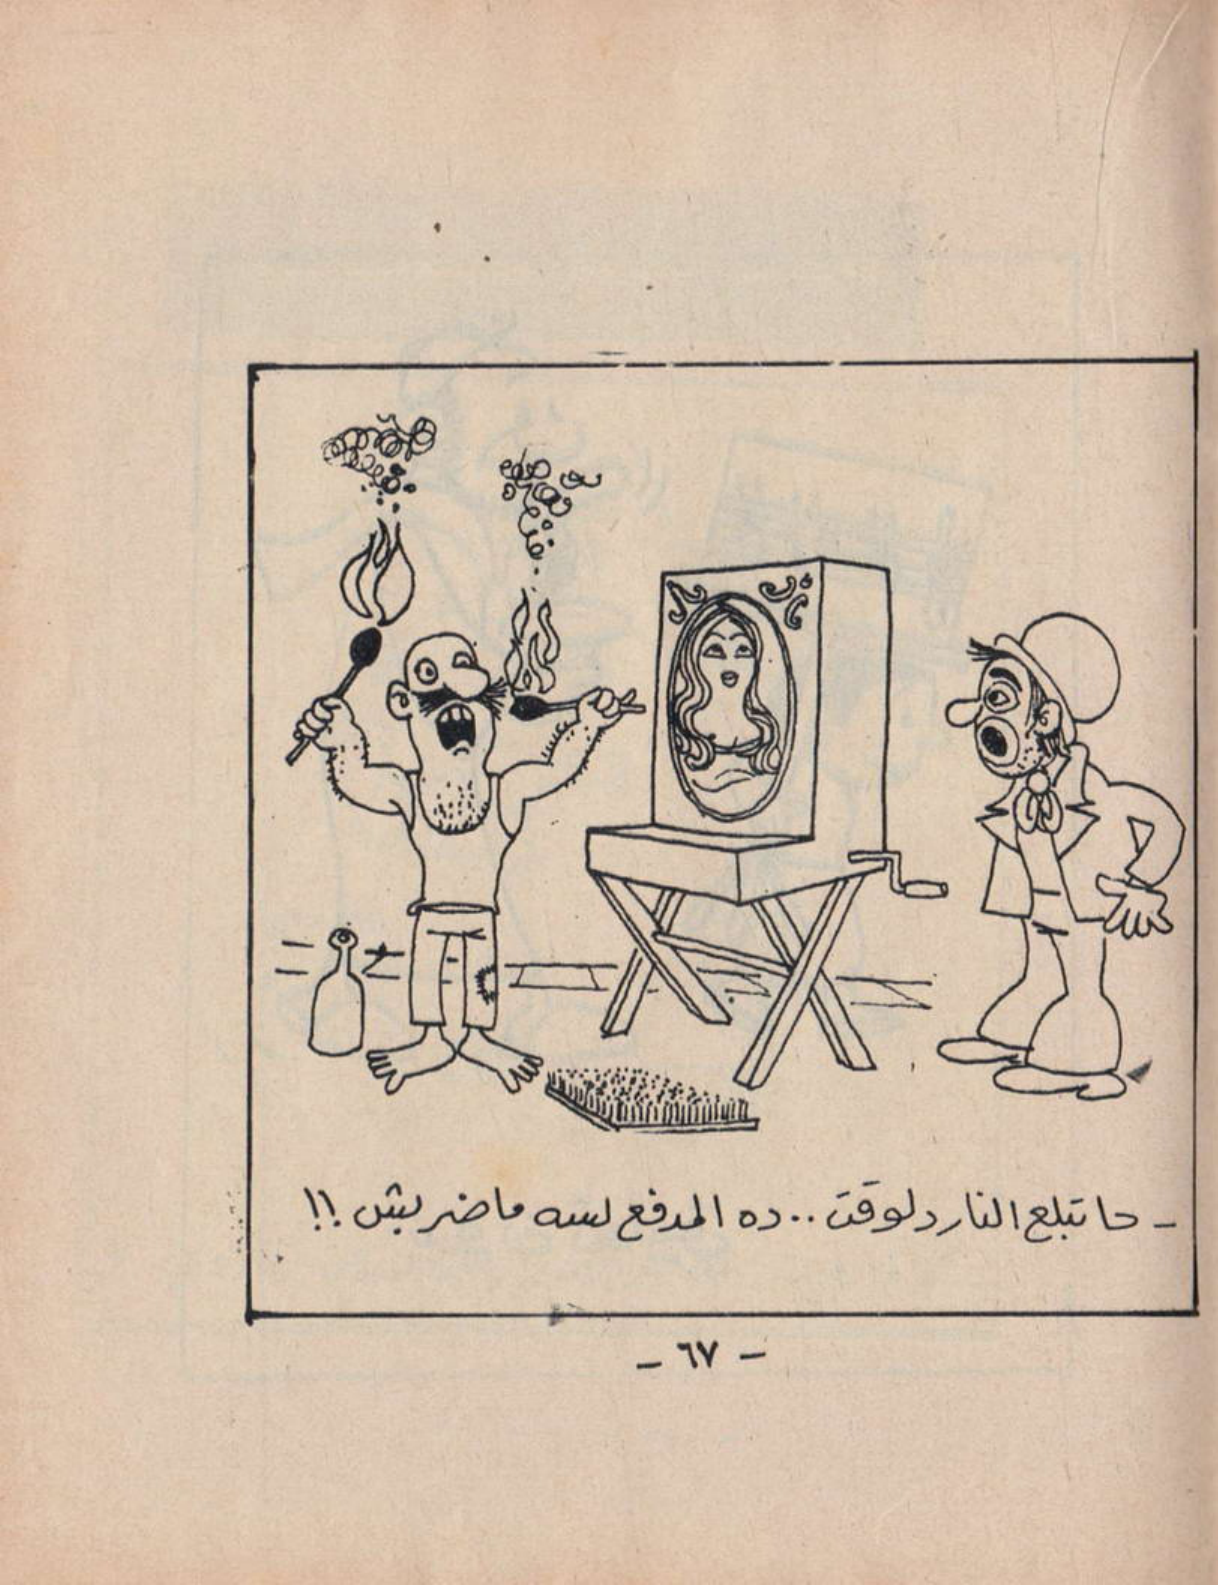 - حاتبلع النار دلوقت .. ده المدفع لسه ماضربش !!
- ٦٧ -